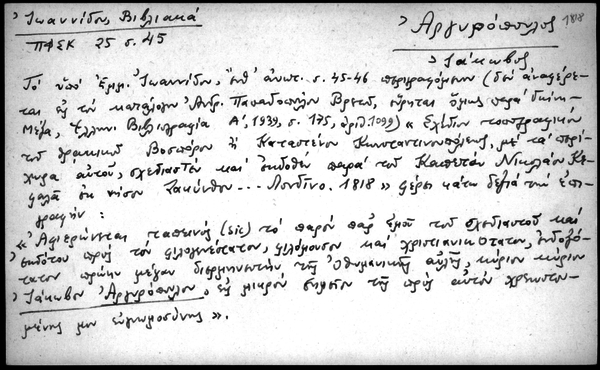 Ἰωαννίδου, Βιβλιακά
ΠΦΣΚ 25 σ. 45
Ἀργυρόπουλος
1818
Ἰάκωβος
Τό ὑπό Ἐμμ. Ἰωαννίδου, ἔνθ' ἀνωτ. σ. 45-46 περιγραφόμενον (δέν ἀναφέρε-
ται εἰς τόν κατάλογον Ἀνδρ. Παπαδοπούλου Βρετοῦ, εὕρηται ὅμως παρά Γκίνη-
Μέξα, Ἑλλην. Βιβλιογραφία Α', 1939, σ. 175, ἀριθ. 1099) « Σχέδιον τοπογραφικόν
τοῦ Θρακικοῦ Βοσπόρου ἤ Καταστένου Κωνσταντινουπόλεως, μέ τά περί-
χωρα αὐτοῦ, σχεδιασθέν καί ἐκδοθέν παρά τοῦ Καπετάν Νικολάου Κε-
φαλᾶ ἐκ νήσου Ζακύνθου... Λονδίνο. 1818 » φέρει κάτω δεξιά τήν ἐπι-
γραφήν :
« Ἀφιερώνεται ταπεινῶς (sic) τό παρόν παρ' ἐμοῦ τοῦ σχεδιαστοῦ καί
ἐκδότου πρός τόν φιλογενέστατον, φιλόμουσον καί χριστιανικώτατον, ἐνδοξό-
τατον πρώην μέγαν διερμηνευτήν τῆς Ὀθωμανικῆς αὐλῆς, κύριον κύριον
Ἰάκωβον Ἀργυρόπουλον, εἰς μικρόν σημεῖον τῆς πρός αὐτόν χρεωστου-
μένης μου εὐγνωμοσύνης ».